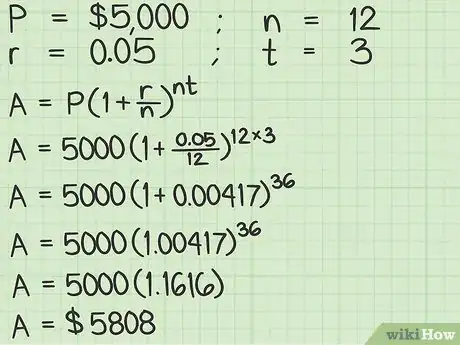 P = $5,000 ; n = 12
r = 0.05 ; t = 3
A = P(1+r/n)^nt
A = 5000(1+0.05/12)^12×3
A = 5000(1+0.00417)^36
A = 5000(1.00417)^36
A = 5000(1.1616)
A = $5808
wikiHow